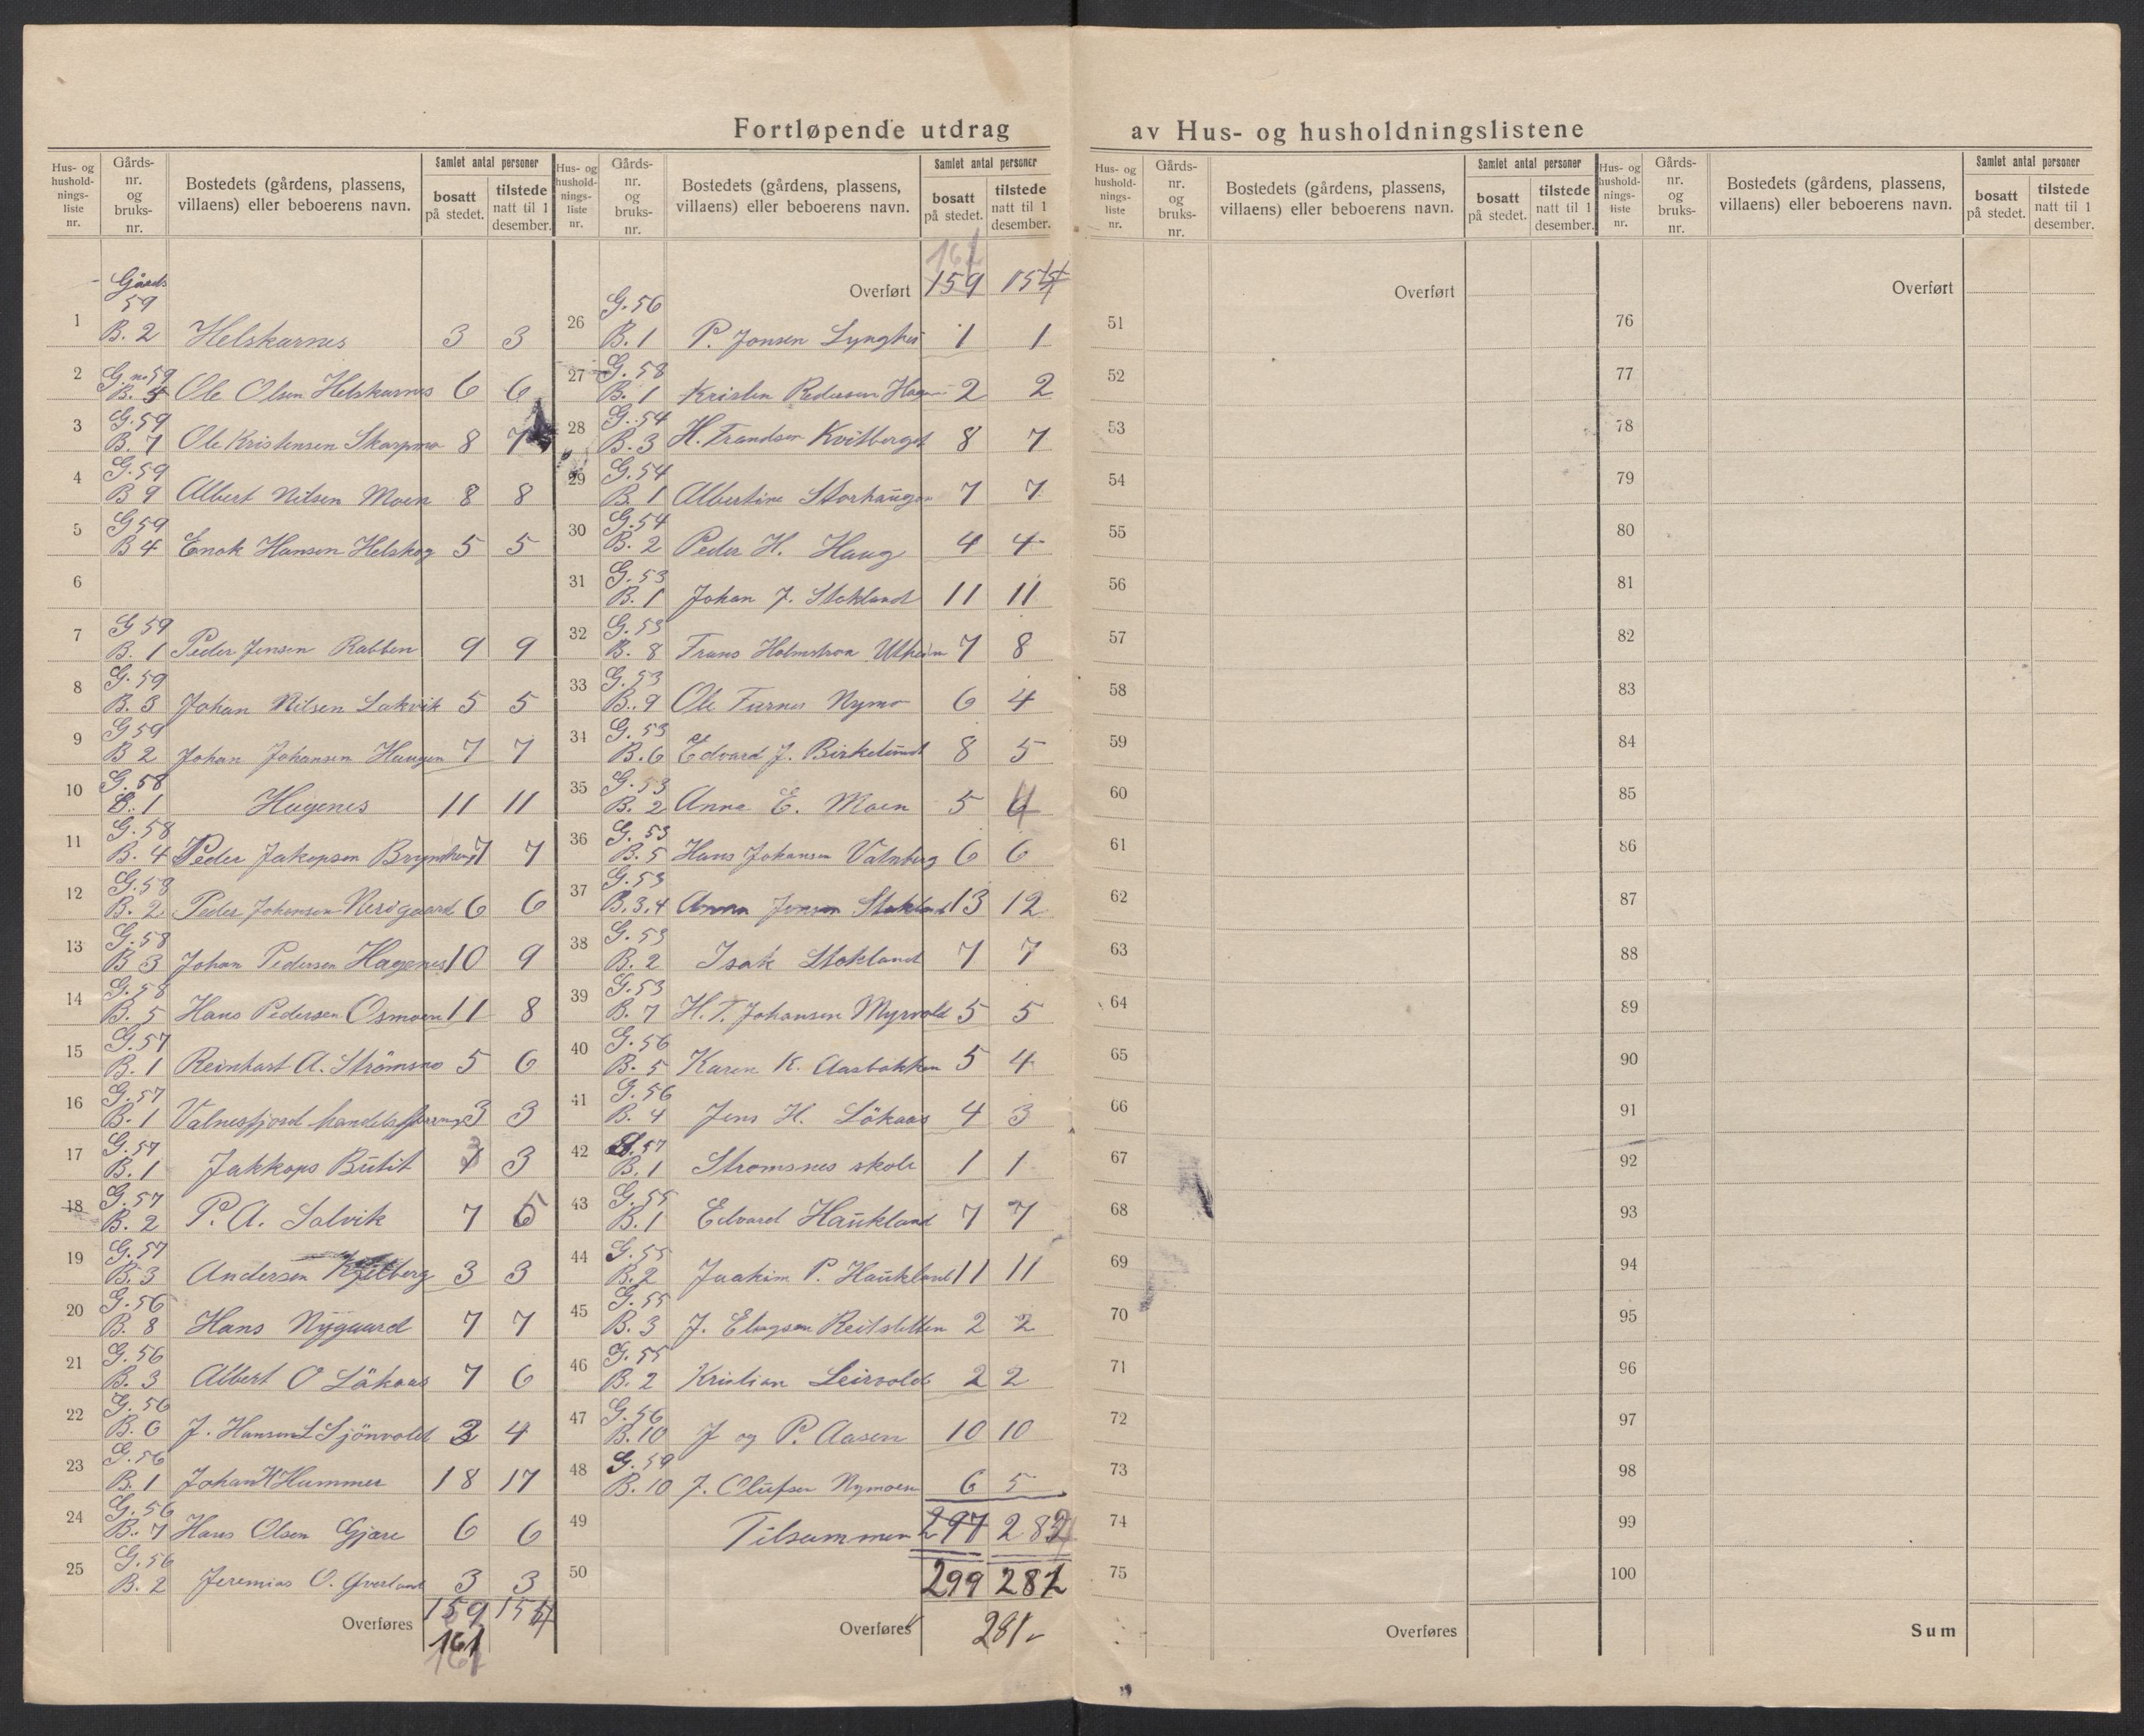 Fortløpende utdrag av Hus- og husholdningslistene
Hus- og hushold-nings-liste nr. Gårds-nr. og bruks-nr. Bostedets (gårdens, plassens, villaens) eller beboerens navn. Samlet antal personer bosatt på stedet. tilstede natt til 1 desember.
1 Gårds 59 B. 2 Helskarnes 3 3
2 G. no 59 B. Ole Olsen Helskarnes 6 6
3 G. 59 B. 7 Ole Kristensen Skarpmo 8 7
4 G. 59 B 9 Albert Nilsen Moen 8 8
5 G 59 B 4 Enok Hansen Helskog 5 5
6
7 G 59 B. 1 Peder Jensen Rabben 9 9
8 G. 59 B. 3 Johan Nilsen Lakvik 5 5
9 G 59 B 2 Johan Johansen Haugen 7 7
10 G. 58 B. 1 Hagenes 11 11
11 G. 58 B. 4 Peder Jakopsen 7 7
12 G. 58 B. 2 Peder Johansen Nerigaard 6 6
13 G. 58 B 3 Johan Pedersen Hagenes 10 9
14 G. 58 B. 5 Hans Pedersen Osmoen 11 8
15 G. 57 B. 1 Reinhart A. Strømsno 5 6
16 G. 57 B. 1 Valnesfjord 3 3
17 G. 57 B. 1 Jakkops Bütit 3 3
18 G. 57 B. 2 P. A. Salvik 7 6
19 G. 57 B. 3 Andersen 3 3
20 G. 56 B. 8 Hans Nygaard 7 7
21 G. 56 B. 3 Albert O Løkaas 7 6
22 G. 56 B. 6 J. Hansen Sjönvold 3 4
23 G. 56 B. 1 Johan H Hammer 18 17
24 G. 56 B. 7 Hans Olsen Gjære 6 6
25 G. 56 B. 2 Jeremias O. Yverland 3 3
Overføres 159 154
161
161
Hus- og hushold-nings-liste nr. Gårds-nr. og bruks-nr. Bostedets (gårdens, plassens, villaens) eller beboerens navn. Samlet antal personer bosatt på stedet. tilstede natt til 1 desember.
161
Overført 159 154
26 G. 56 B. 1 P. Jonsen Lynghei 1 1
27 G. 58 B. 1 Kristen Pedersen Hagen 2 2
28 G. 54 B. 3 H. Trandsen Kvitberget 8 7
29 G. 54 B 1 Albertine Storhaugen 7 7
30 G. 54 B. 2 Peder H. Haug 4 4
31 G. 53 B. 1 Johan J. Stokland 11 11
32 G. 53 B. 8 Frans Holmstrøm Utheim 7 8
33 G. 53 B. 9 Ole Furnes Nymo 6 4
34 G. 53 B. 6 Edvard J. Birkelund 8 5
35 G. 53 B. 2 Anna E. Moen 5 4
36 G. 53 B. 5 Hans Johansen Vatnberg 6 6
37 G. 53 B. 3.4 Anna Jensen Stokland 13 12
38 G. 53 B. 2 Isak Stokland 7 7
39 G. 53 B. 7 H. T. Johansen Myrvold 5 5
40 G. 56 B. 5 Karen K. Aasbakken 5 4
41 G. 56 B. 4 Jens H. Løkaas 4 3
42 G. 57 B. 1 Strømsnes skole 1 1
43 G. 55 B. 1 Edvard Haukland 7 7
44 G. 55 B. 2 Joakim P. Haukland 11 11
45 G. 55 B. 3 J. Elingsen Reitsletten 2 2
46 G. 55 B. 2 Kristian Leirvold 2 2
47 G. 56 B. 10 J og P. Aasen 10 10
48 G. 59 B. 10 J. Olufsen Nymoen 6 5
49 Tilsammen 297 282
50 299 281
Overføres 281
Hus- og hushold-nings-liste nr. Gårds-nr. og bruks-nr. Bostedets (gårdens, plassens, villaens) eller beboerens navn. Samlet antal personer bosatt på stedet. tilstede natt til 1 desember.
Overført
51
52
53
54
55
56
57
58
59
60
61
62
63
64
65
66
67
68
69
70
71
72
73
74
75
Overføres
Hus- og hushold-nings-liste nr. Gårds-nr. og bruks-nr. Bostedets (gårdens, plassens, villaens) eller beboerens navn. Samlet antal personer bosatt på stedet. tilstede natt til 1 desember.
Overført
76
77
78
79
80
81
82
83
84
85
86
87
88
89
90
91
92
93
94
95
96
97
98
99
100
Sum